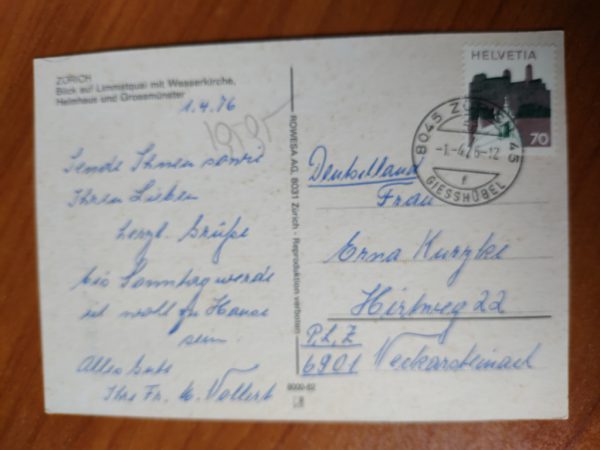 ZÜRICH
Blick auf Limmatquai mit Wasserkirche,
Helmhaus und Grossmünster
1.4.76
Sende Ihnen sowie
Ihren Lieben
herzl. Grüße
bis Sonntag werde
ich wohl zu Hause
sein.
Alles Gute
Ihre Fr. M. Vollert
ROWESA AG, 8031 Zürich - Reproduktion verboten
9000-82
HELVETIA
70
8045 ZÜRICH 45
GIESSHÜBEL
f
Deutschland
Frau
Erna Kurzke
Hirtweg 22
P.L.Z
6901 Neckarsteinach